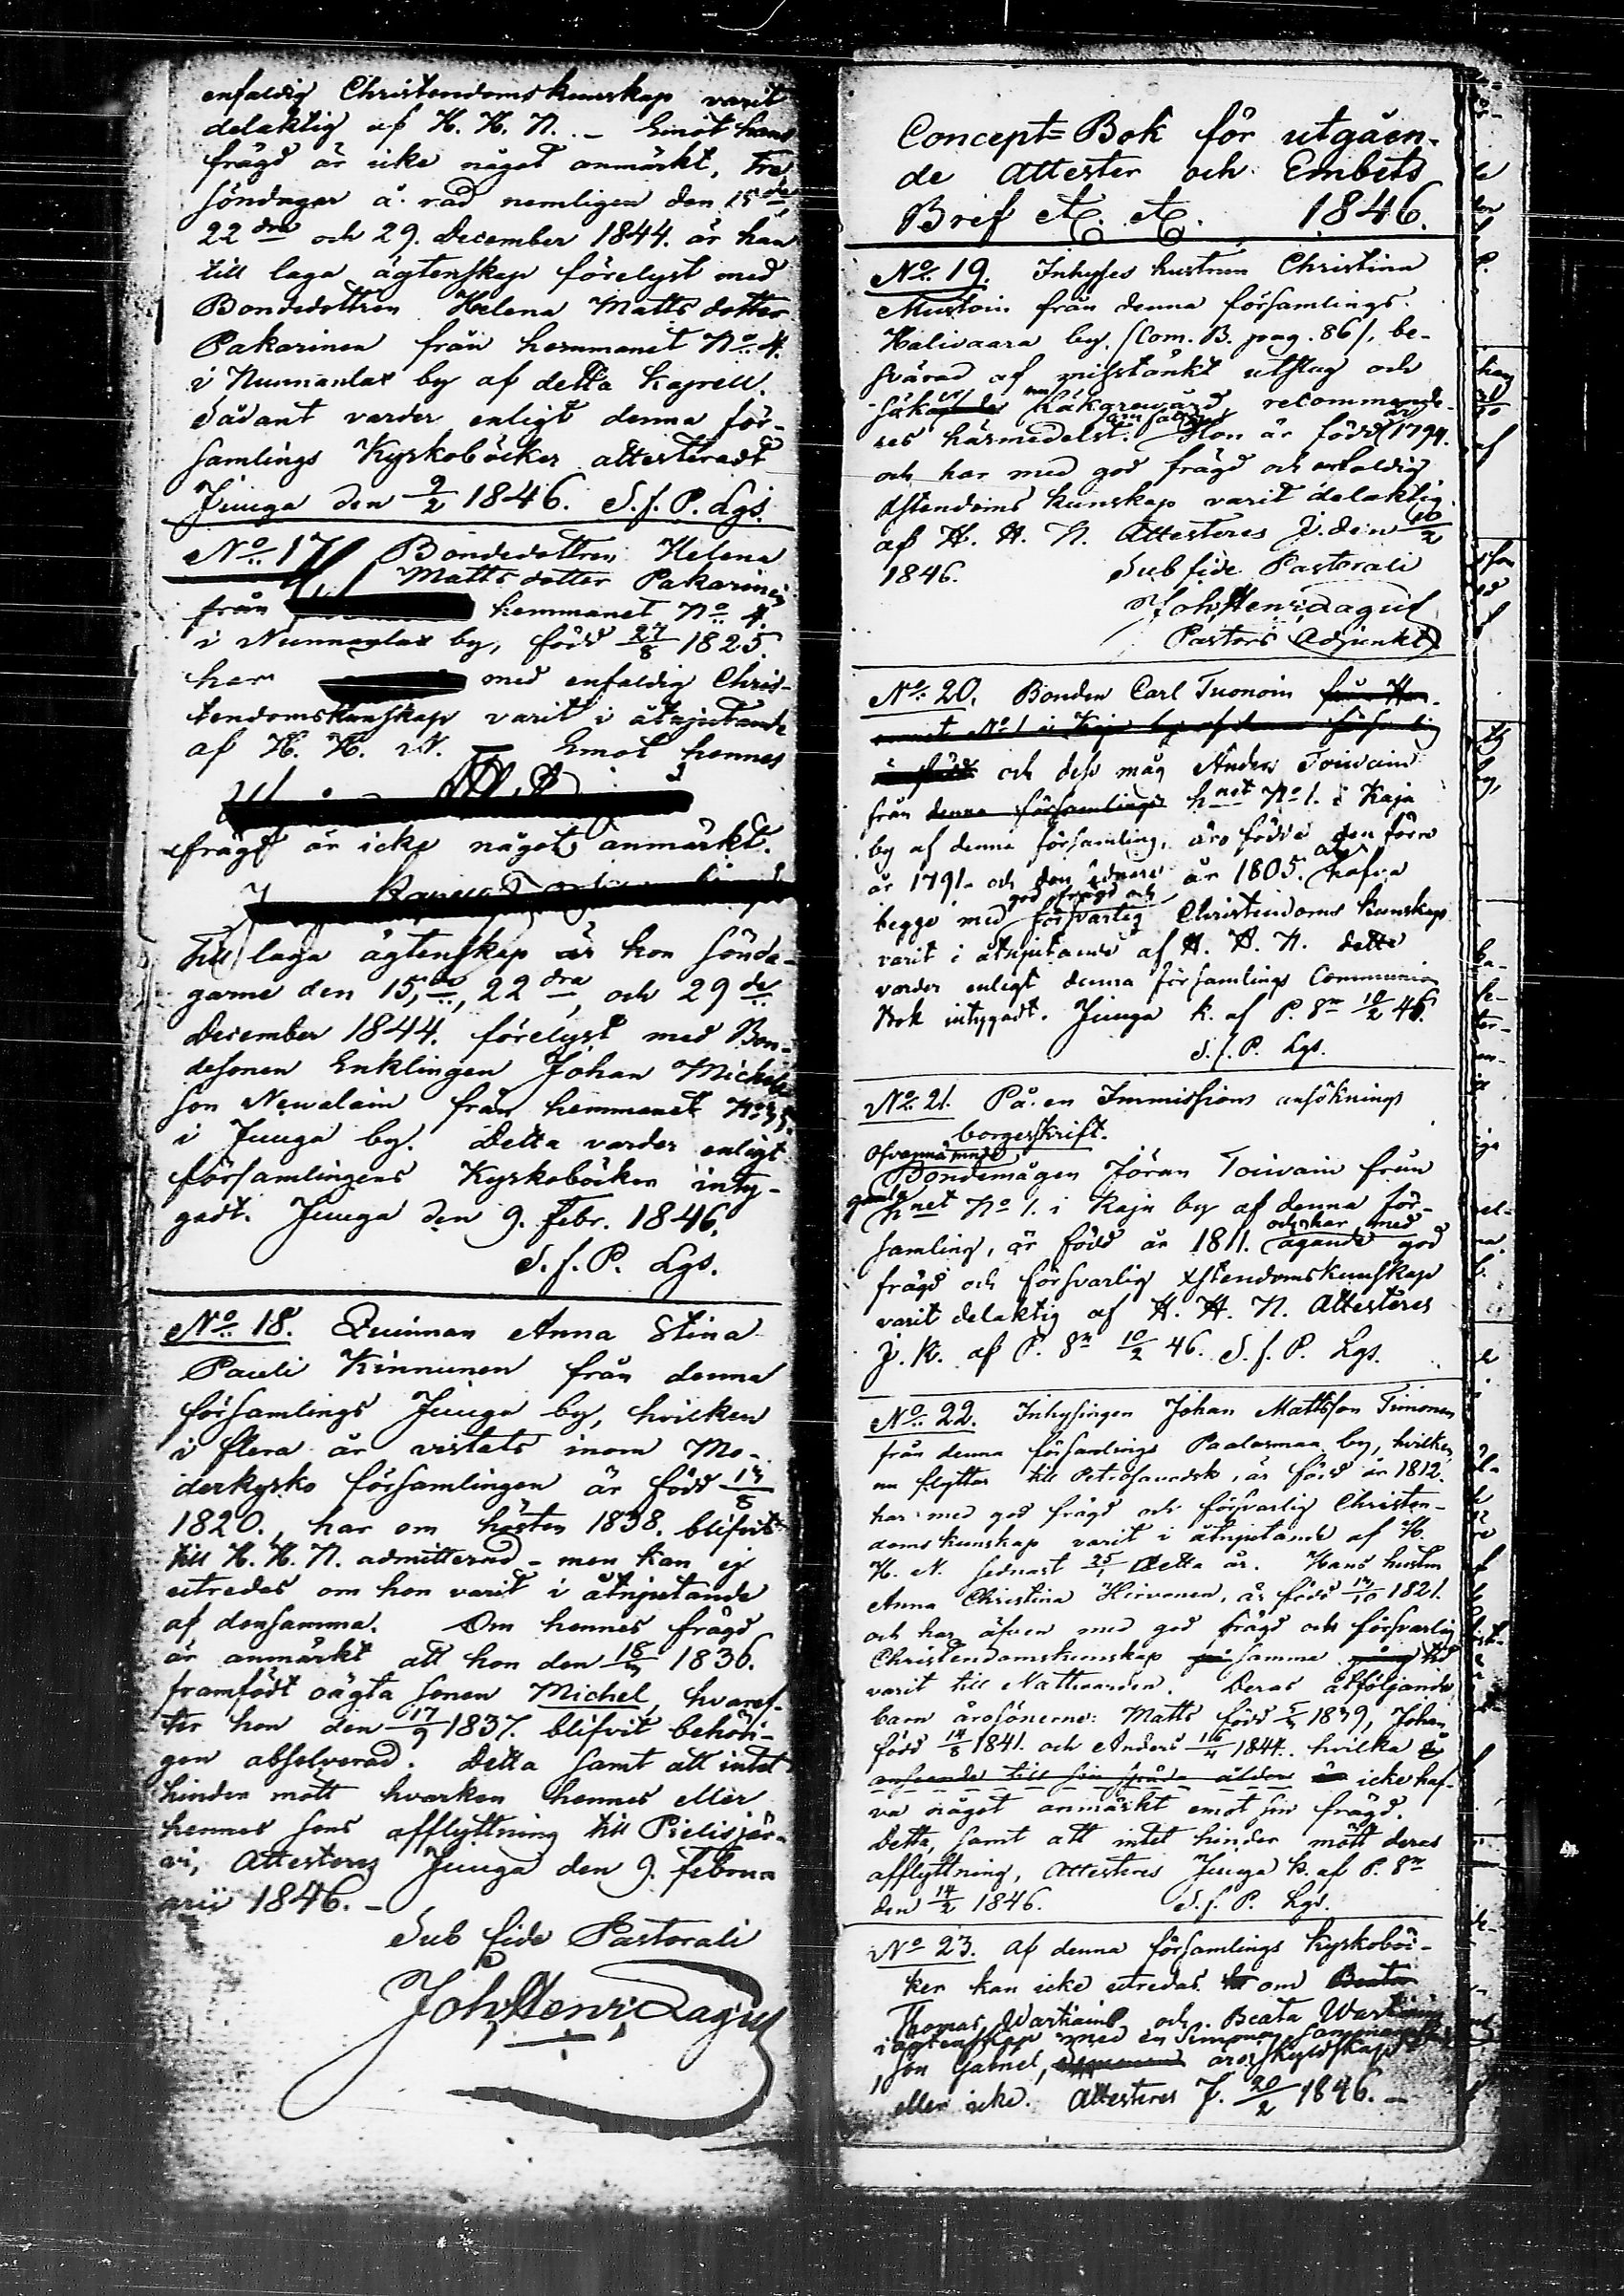 enfaldig Christendomskunskap varit
delaktig af H. H. N. – Emot hans
frägd är icke något anmärkt. Tre
söndagar å rad nemligen den 15de,
22dra och 29. December 1844. är han
till laga ägtenskap förelyst med
Bondedottren Helena Mattsdotter
Pakarinen från hemmanet No 4.
i Nunnanlax by af detta Kapell.
Sådant varder enligt denna för-
samlings Kyrkoböcker attesteradt
Juuga den 9/2 1846. S. f. P. Lgs.
No 17 Bondedottren Helena
Mattsdotter Pakarinen
från hemmanet No 4.
i Nunnanlax by, född 27/8 1825.
har med enfaldig Chris-
tendomskunskap varit i åtnjutande
af H. H. N. – Emot hennes
frägd är icke något anmärkt.
Till laga ägtenskap är hon sönda-
garne den 15de, 22dra och 29de
December 1844. förelyst med Bon-
desonen Enklingen Johan Michels
son Newalain från hemmanet
i Juuga by. Detta varder enligt
församlingens Kyrkoböcker inty-
gadt. Juuga den 9. Febr. 1846.
S. f. P. Lgs.
No 18. Quinnan Anna Stina
Pauli Kinnunen från denna
församlings Juuga by, hvilken
i flera år vistats inom Mo-
derkyrko församlingen är född 13/8
1820., har om hösten 1838. blifvit
till H. H. N. admitterad – men kan ej
utredas om hon varit i åtnjutande
af densamma. Om hennes frägd
är anmärkt att hon den 18/7 1836.
framfödt oägta sonen Michel, hvaref-
ter hon den 17/9 1837. blifvit behöri-
gen absolverad. Detta samt att intet
hinder mött hvarken hennes eller
hennes sons afflyttning till Pielisjär-
vi, Attesteras Juuga den 9. Februa
arii 1846. –
Sub fide Pastorali
Joh. Henr. Lagus
Concept-Bok för utgåen-
de Attester och Embets
Bref etc. etc. 1846.
No 19. Inhyses hustrun Christina
Mustoin från denna församlings
Halivaara by. (Com. B. pag. 86), be-
svärad af misstänkt utslag och
recommende-
res härmedelst. Hon är född år 1794.
och har med god frägd och enfaldig
Xstendoms kunskap varit delaktig
af H. H. N. Attesteres J. den 10/2
1846. Sub fide Pastorali
Joh. Henr. Lagus
Pastors Adjunkt
No 20. Bonden Carl Tuonoin från Hem-
manet No 1 i Kaja by af denna församling
och dess måg Anders Toivain
från denna församlings hnet No 1. i Kaja
by af denna församling, äro födde den förre
år 1791. och den sednare år 1805. hafva
begge med god frägd och försvarlig Christendoms kunskap
varit i åtnjutande af H. H. N. Detta
varder enligt denna församlings Communion
Bok intygadt. Juuga K. af P. Sn 10/2 46.
S. f. P. Lgs.
No 21. På en Immissions ansöknings
borgesskrift.
Ofvannämnde
Bondemågen Jöran Toivain från
hnet No 1. i Kaja by af denna för-
samling, är född år 1811. och har med ägande god
frägd och försvarlig Xstendomskunskap
varit delaktig af H. H. N. Attesteres
J. K. af P. Sn 10/2 46. S. f. P. Lgs.
No 22. Inhysingen Johan Mattsson Timonen
från denna församlings Paalasmaa by, hvilken
nu flyttar till Petrosavodsk, är född år 1812.
har med god frägd och försvarlig Christen-
doms kunskap varit i åtnjutande af H.
H. N. sednast 25/1 detta år. Hans hustru
Anna Christina Hirvonen, är född 13/10 1821.
och har äfven med god frägd och försvarlig
Christendomskunskap samma tid
varit till Nattvarden. Deras åtföljande
barn äro sönerne: Matts född 1839, Johan
född 14/8 1841. och Anders 16/4 1844. hvilka
anseende till sin späda ålder icke haf-
va något anmärkt emot sin frägd.
Detta, samt att intet hinder mött deras
afflyttning, Attesteres Juuga K. af P. Sn
den 14/2 1846. S. f. P. Lgs.
No 23. Af denna församlings Kyrkoböc-
ker kan icke utredas om Beata
Thomas Wartiain och Beata
i ägtenskap med en Simon
son Gabriel, äro i skyldskap
eller icke. Attesteres J. 20/2 1846. –